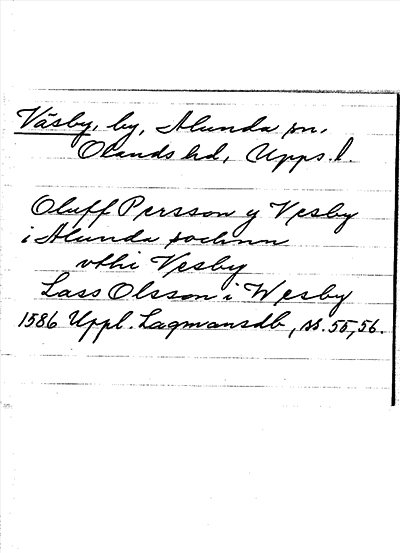 Väsby, by, Alunda sn.
Olands hd, Upps. l.
Oluff Persson y Vesby
i Alunda sochnn
vthi Vesby
Lass Olsson i Wesby
1586 Uppl. Lagmansdb, ss. 55, 56.